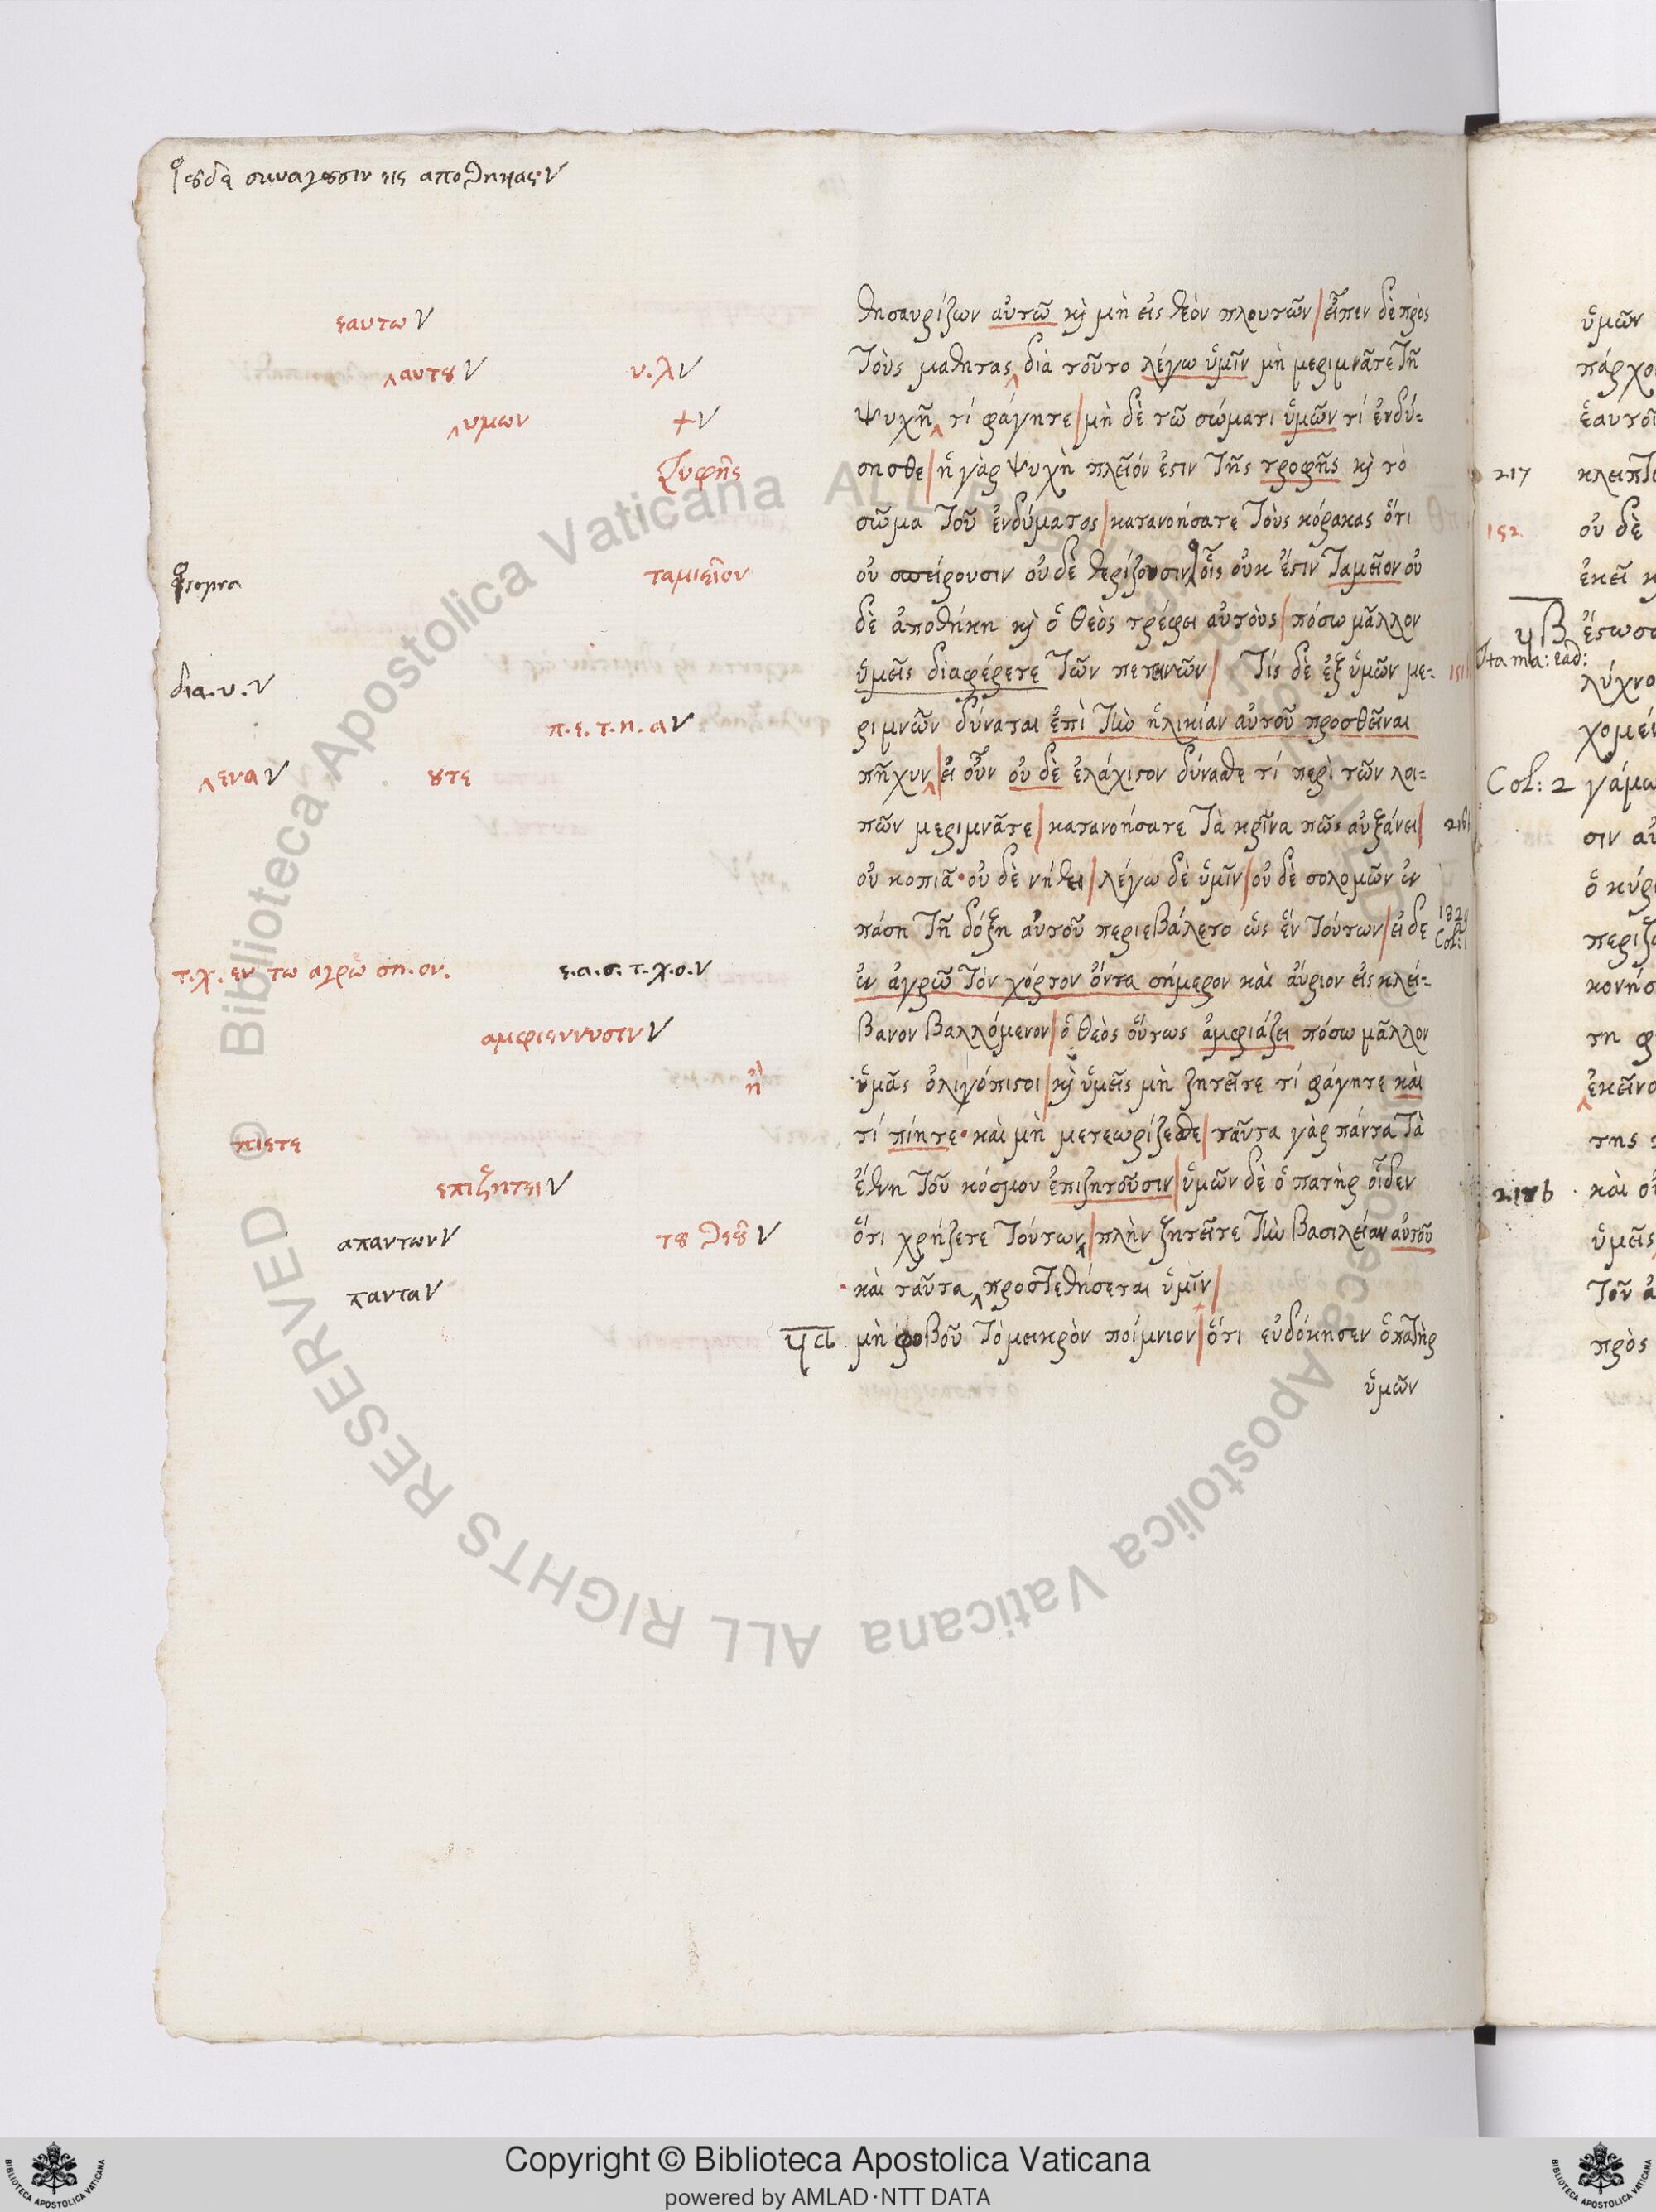 ουδὲ συναγουσιν εις αποθηκας·ν
εαυτω ν
θησαυρίζων αὑτῶ κ̀ μὴ εἰς θεὸν πλουτῶν/εἶπεν δὲ πρὸς
‸αυτου ν υ.λ ν
Τοὺς μαθητας‸ διὰ τοῦτο λέγω ὑμῖν μὴ μεριμνᾶτε τῆ
‸υμων + ν
ψυχῆ‸ τί φάγητε/μὴ δὲ τῶ σώματι ὑμῶν τί ἐνδύ-
ζυφῆς
σησθε/ἡ γὰρ ψυχὴ πλεῖόν ἐστιν τῆς τροφῆς κ̀ τὸ
σῶμα τοῦ ἐνδύματος/κατανοήσατε τοὺς κόρακας ὅτι
sopra ταμιεῖον
οὐ σπείρουσιν οὐ δὲ θερίζουσιν/οἷς οὐκ ἔστιν ταμεῖον οὐ
δὲ ἀποθήκη κ̀ ὁ θεὸς τρέφει αὐτοὺς/πόσω μᾶλλον
δια.υ.ν
ὑμεῖς διαφέρετε τῶν πετεινῶν/ Τίς δὲ ἐξ ὑμῶν με- 151
π.ε.τ.η.α ν
ριμνῶν δύναται ἐπὶ τὴν ἡλικίαν αὐτοῦ προσθεῖναι
‸ενα ν ουτε
πῆχυν‸/εἰ οὖν οὐ δὲ ἐλάχιστον δύνασθε τί περὶ τῶν λοι-
πῶν μεριμνᾶτε/κατανοήσατε τὰ κρῖνα πῶς αὐξάνει/
οὐ κοπιᾶ·οὐ δὲ νήθει/λέγω δὲ ὑμῖν/οὐ δὲ σολομῶν ἐν
πάση τῆ δόξη αὐτοῦ περιεβάλετο ὡς ἓν τούτων/εἰ δε
τ.χ. εν τω αγρω ση.ον. ε.α.σ.τ.χ.ο.ν
ἐν ἀγρῶ τὸν χόρτον ὄντα σήμερον καὶ αὔριον εἰς κλεί-
αμφιεννυσιν ν
βανον βαλλόμενον/ὁ θεὸς οὕτως ἀμφιάζει πόσω μᾶλλον
ἢ
ὑμᾶς ὀλιγόπιστοι/κ̀ ὑμεῖς μὴ ζητεῖτε τί φάγητε καὶ
πιετε
τί πίητε·καὶ μὴ μετεωρίζεσθε/ταῦτα γὰρ πάντα τὰ
επιζητει ν
ἔθνη τοῦ κόσμου ἐπιζητοῦσιν/ὑμῶν δὲ ὁ πατὴρ οἶδεν
απαντων ν του θεοῦ ν
ὅτι χρήζετε τούτων‸/πλὴν ζητεῖτε τὴν βασιλείαν αὐτοῦ
παντα ν
καὶ ταῦτα‸ προστεθήσεται ὑμῖν/
ϟα μὴ φοβοῦ τὸ μεικρὸν ποίμνιον/ὅτι εὐδόκησεν ὁ πατὴρ
ὑμῶν
ὑμῶν
217
152
οὐ δὲ
ϟβ
Ita ma: ead:
Col: 2
ὁ κύρι
‸ἐκεῖνο
της
218 b καὶ
ὑμεῖς
πρὸς
Copyright © Biblioteca Apostolica Vaticana
powered by AMLAD·NTT DATA